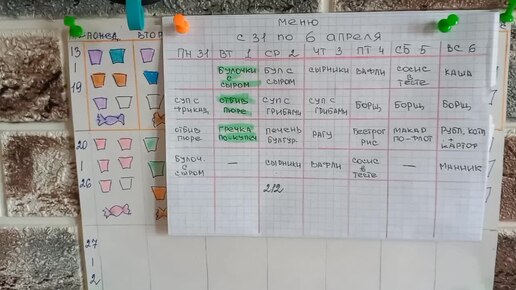 ПОНЕД. ВТОР
МЕНЮ
С 31 ПО 6 АПРЕЛЯ
ПН 31 ВТ 1 СР 2 ЧТ 3 ПТ 4 СБ 5 ВС 6
БУЛОЧКИ С СЫРОМ БУЛ С СЫРОМ СЫРНИКИ ВАФЛИ СОСИС В ТЕСТЕ КАША
СУП С ФРИКАД ОТБИВ ПЮРЕ СУП С ГРИБАМИ СУП С ГРИБАМИ БОРЩ БОРЩ БОРЩ
ОТБИВ ПЮРЕ ГРЕЧКА ПО-КУПЕЧ ПЕЧЕНЬ БУЛГУР РАГУ РИС МАКАР ПО-ФЛОТ РУБЛ. КОТЛ + КАРТОФ
БУЛОЧ. С СЫРОМ — СЫРНИКИ ВАФЛИ СОСИС В ТЕСТЕ — МАННИК
212
13
1
19
20
1
26
27
1
2